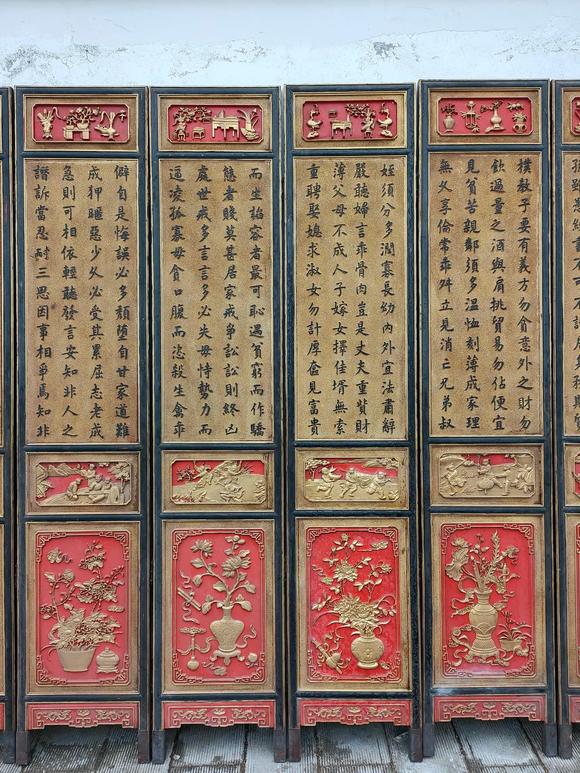 樸敎子要有義方勿貪意外之財勿
飲過量之酒與肩挑貿易勿佔便宜
見貧苦親鄰須多溫恤刻薄成家理
無久享倫常乖舛立見消亡兄弟叔
姪須分多潤寡長幼內外宜法肅辭
嚴聽婦言乖骨肉豈是丈夫重貲財
薄父母不成人子嫁女擇佳壻無索
重聘娶媳求淑女勿計厚奩見富貴
而生諂容者最可恥遇貧窮而作驕
態者賤莫甚居家戒爭訟訟則終凶
處世戒多言言多必失毋恃勢力而
逼凌孤寡毋貪口腹而恣殺生禽乖
僻自是悔誤必多頹墮自甘家道難
成狎暱惡少久必受其累屈志老成
急則可相依輕聽發言安知非人之
譖訴當忍耐三思因事相爭焉知非